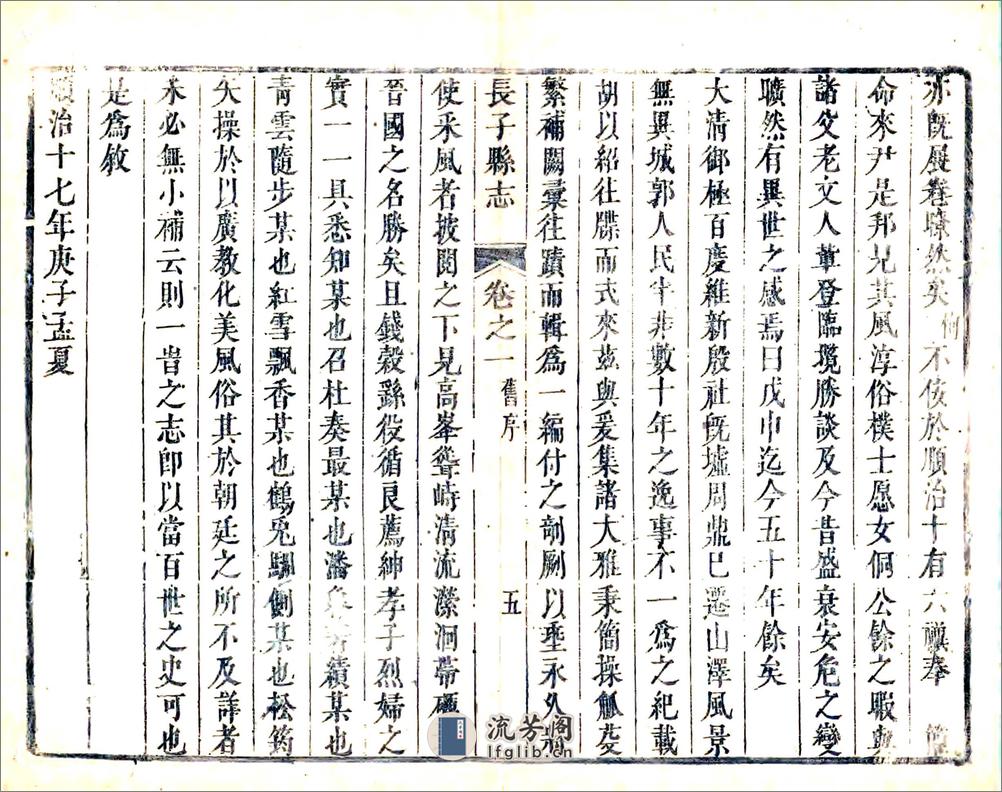 亦既展卷瞭然矣何不佞於順治十有六禩奉簡
命來尹是邦見其風淳俗樸士愿女侗公餘之暇與
諸父老文人輩登臨攬勝談及今昔盛衰安危之變
曠然有異世之感焉曰戊申迄今五十年餘矣
大清御極百慶維新殷社既墟周鼎已遷山澤風景
無異城郭人民半非數十年之逸事不一爲之紀載
胡以紹往牒而式來茲與爰集諸大雅秉簡操觚芟
繁補闕彙往蹟而輯爲一編付之剞劂以垂永久
長子縣志 卷之一 舊序 五
使釆風者披閱之下見高峯聳峙清流瀠洄帶礪
晉國之名勝矣且錢穀繇役循良薦紳孝子烈婦之
實一一具悉知某也召杜奏最某也潘 績某也
青雲隨步某也紅雪飄香某也鶴 馴側某也松筠
矢操於以廣教化美風俗其於朝廷之所不及詳者
未必無小補云則一眚之志卽以當百世之史可也
是爲敘
順治十七年庚子孟夏
流芳閣
lfglib.cn